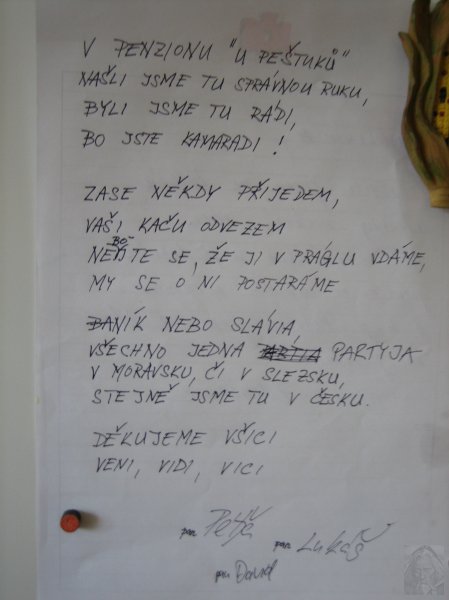 V PENZIONU "U PEŠTUKŮ"
NAŠLI JSME TU SPRÁVNOU RUKU,
BYLI JSME TU RÁDI,
BO JSTE KAMARADI!
ZASE NĚKDY PŘIJEDEM,
VAŠI KAČU ODVEZEM
NEBOJTE SE, ŽE JI V PRÁGLU VDÁME,
MY SE O NI POSTARÁME
BANÍK NEBO SLÁVIA,
VŠECHNO JEDNA PARTYJA
V MORAVSKU, ČI V SLEZSKU,
STEJNĚ JSME TU V ČESKU.
DĚKUJEME VŠICI
VENI, VIDI, VICI
pan Petja pan Lukáš
pan David